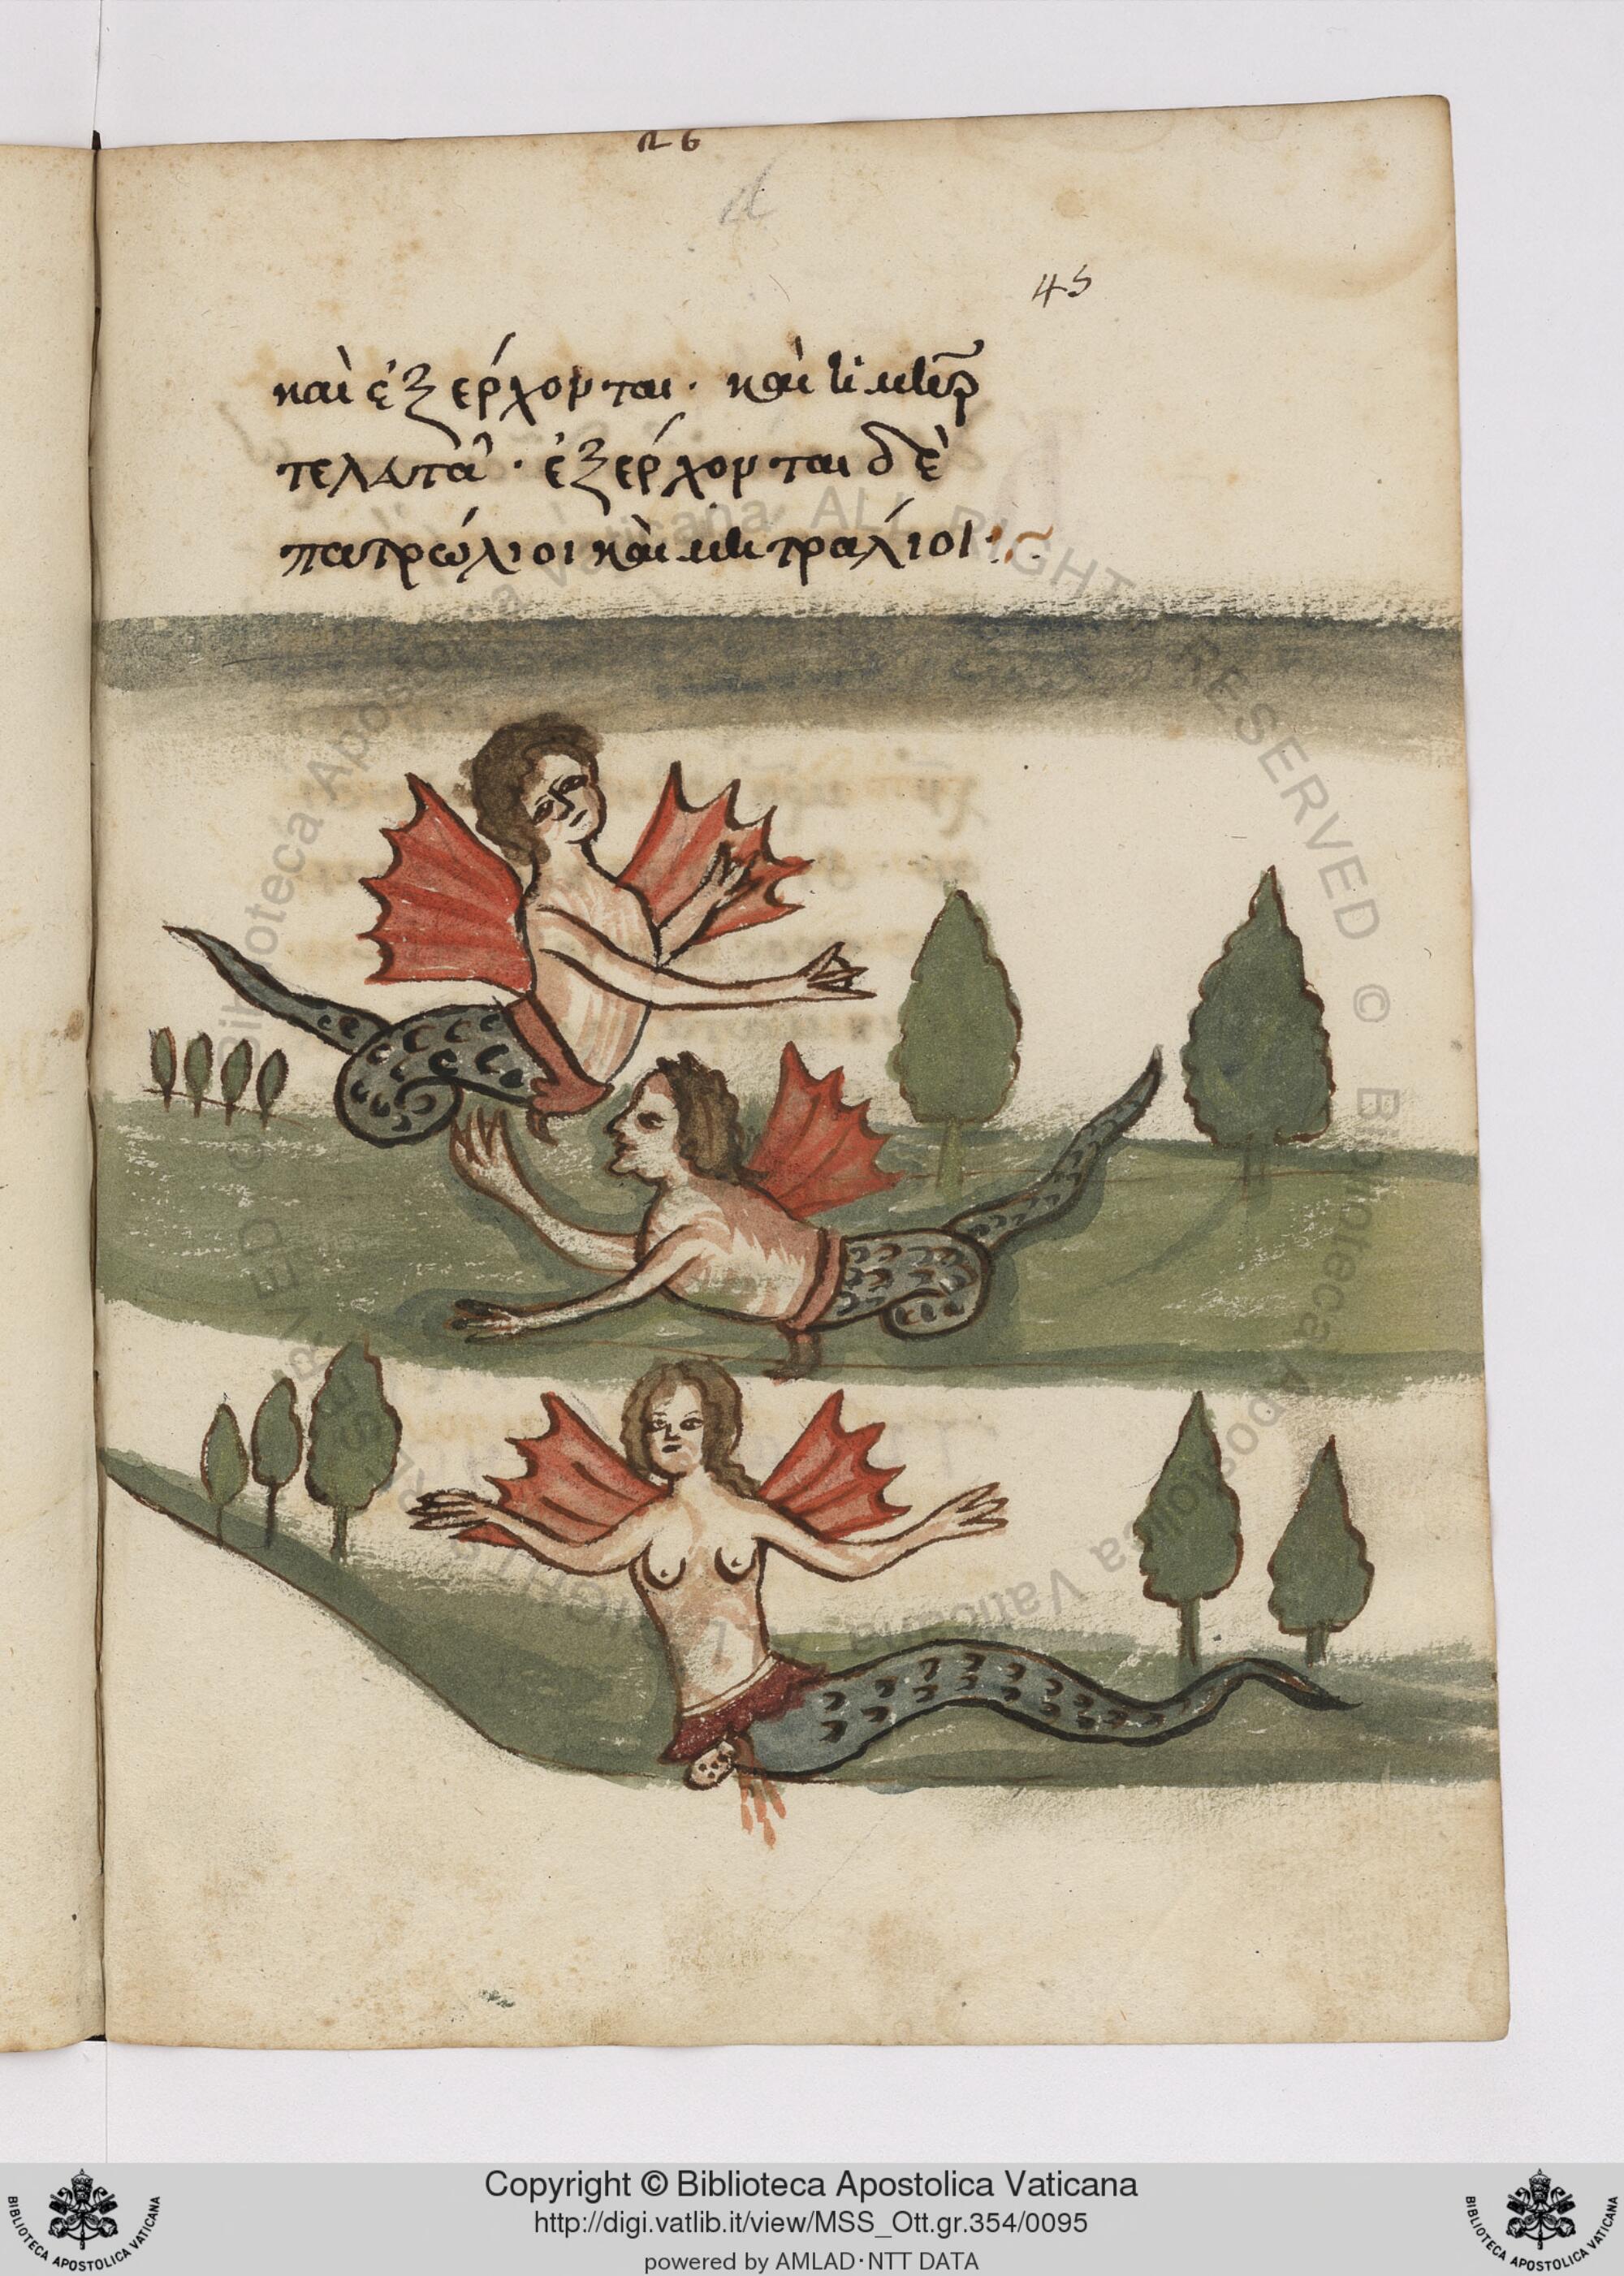 26
d
45
καὶ ἐξέρχονται· καὶ ἡ μηῖρ
τελευτᾶ· ἐξέρχονται δὲ
πατρώλιοι καὶ μητραλίοι·
Biblioteca Apostolica Vaticana ALL RIGHTS RESERVED ©
Biblioteca Apostolica Vaticana ALL RIGHTS RESERVED ©
BIBLIOTECA APOSTOLICA VATICANA
Copyright © Biblioteca Apostolica Vaticana
http://digi.vatlib.it/view/MSS_Ott.gr.354/0095
powered by AMLAD·NTT DATA
BIBLIOTECA APOSTOLICA VATICANA